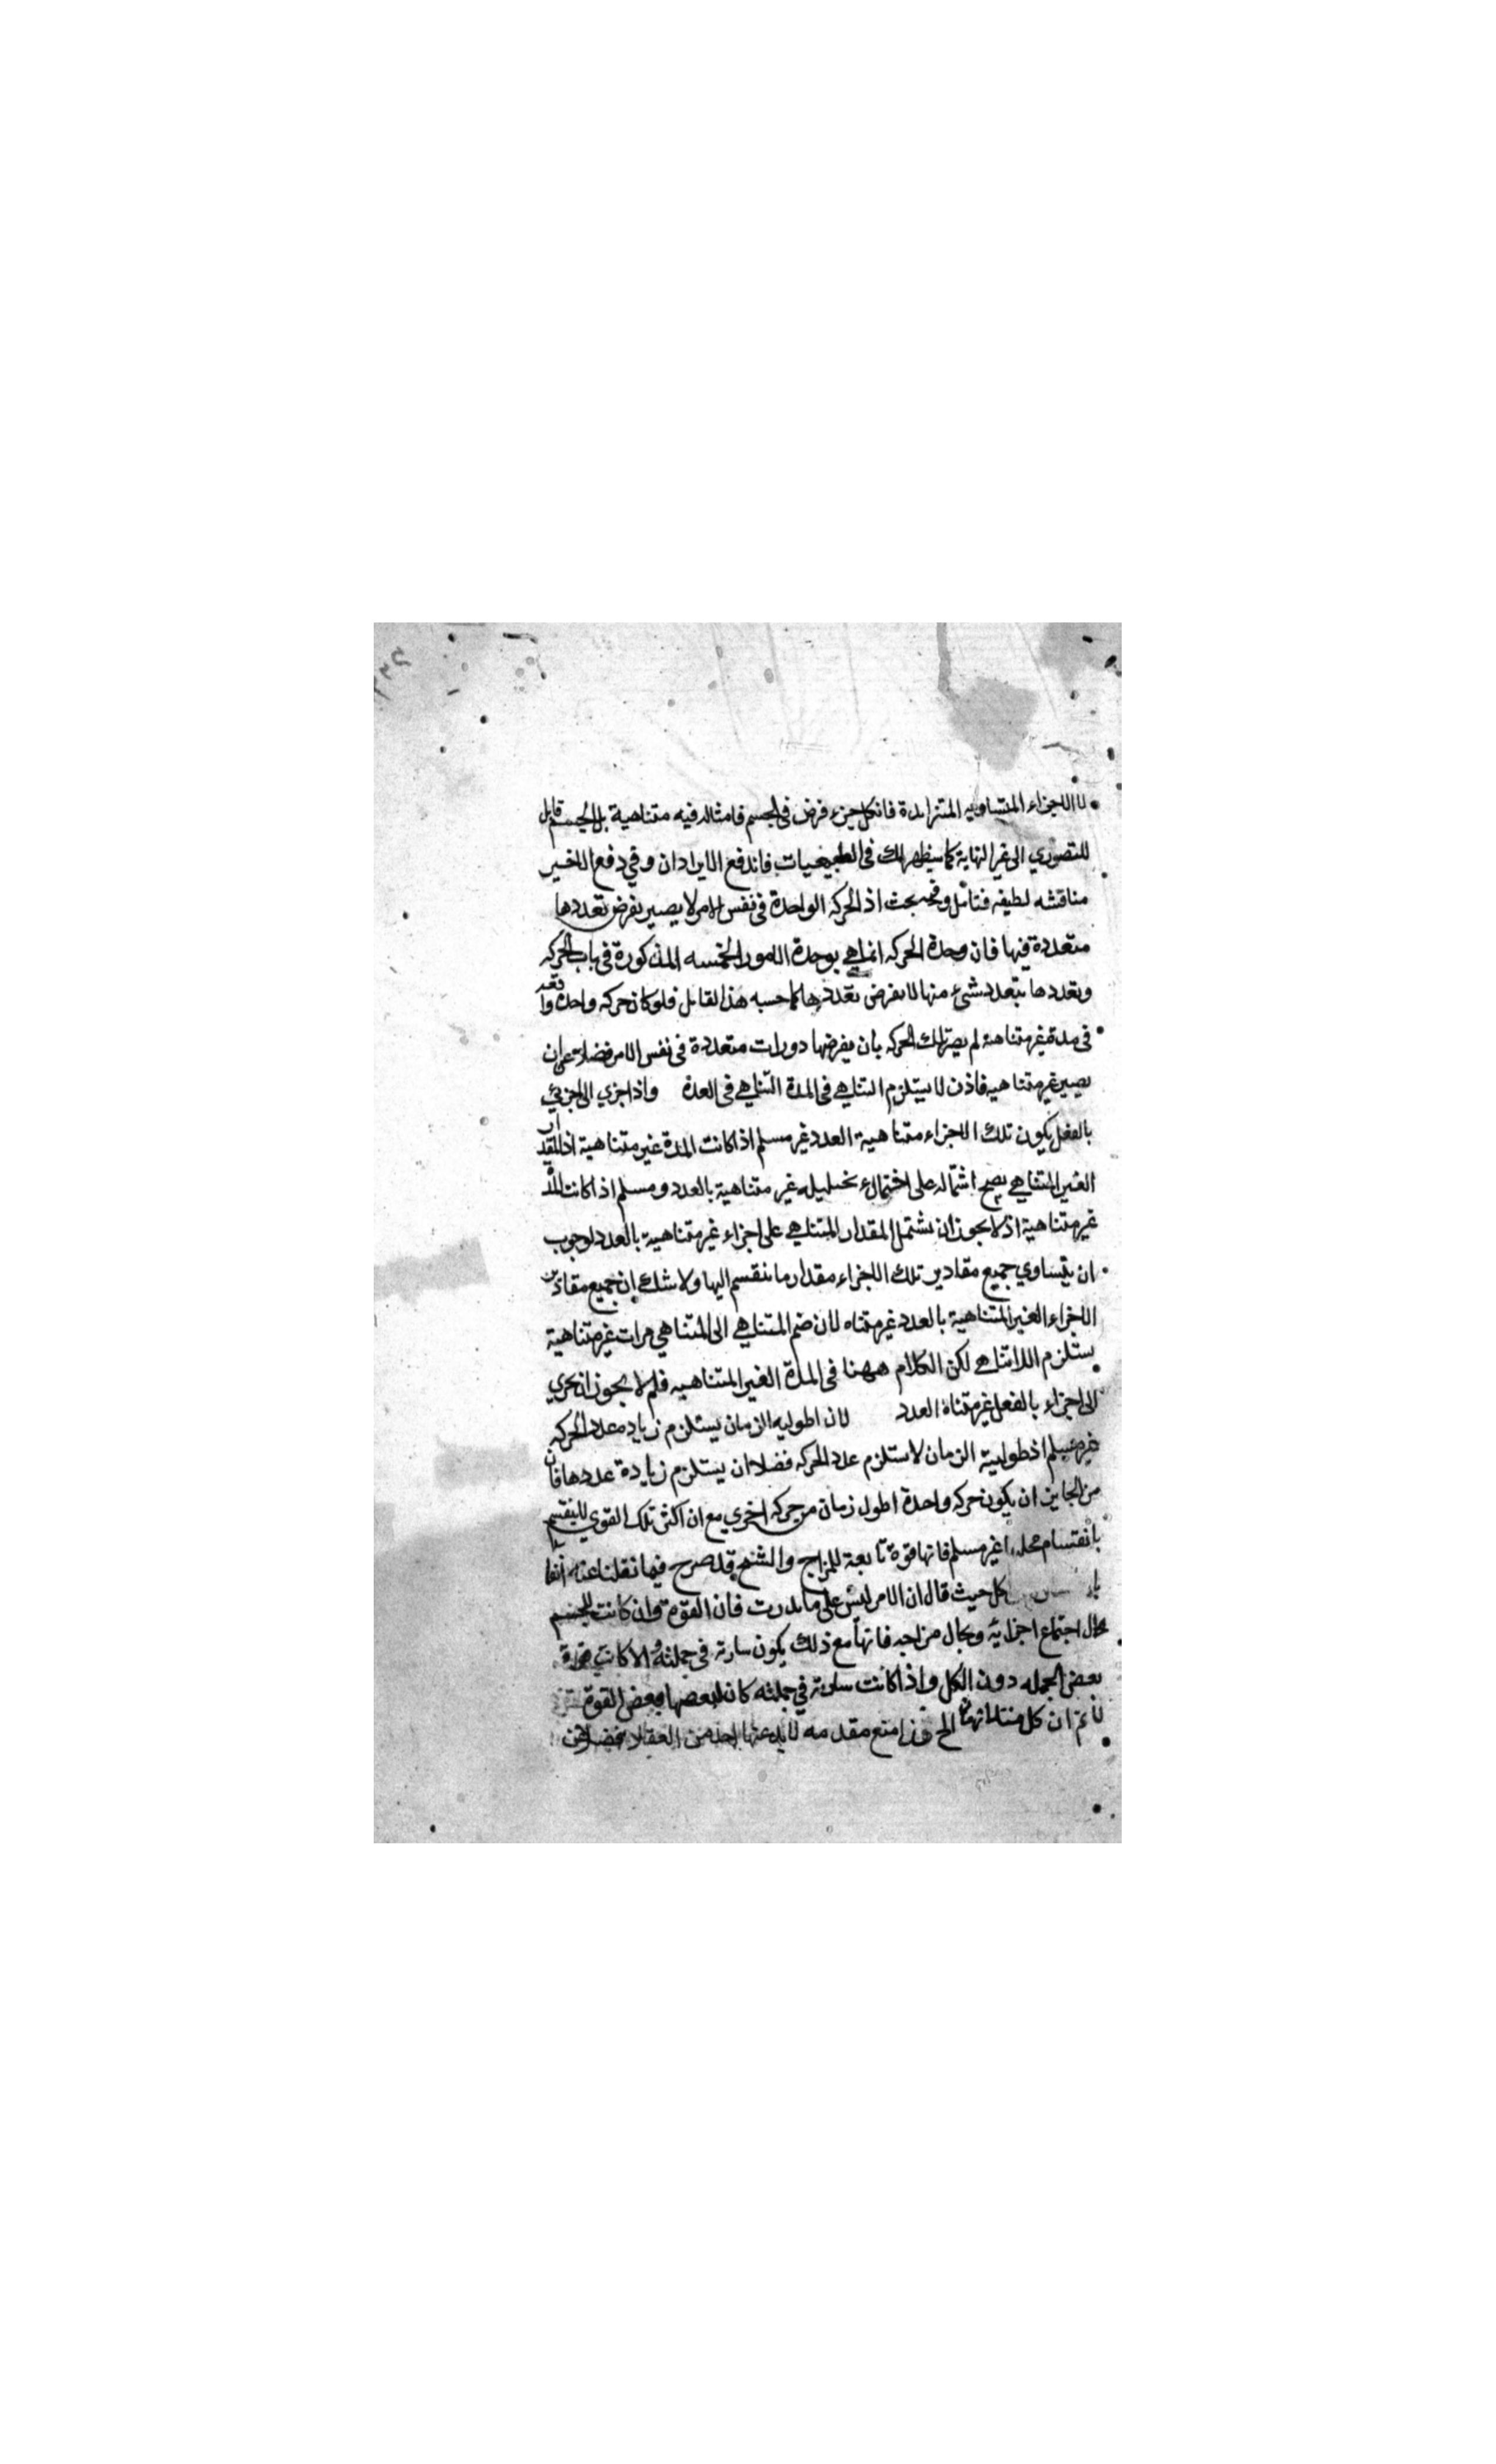 لا الاجزاء المتساويه المتزايدة فان كل جزء فرض في الجسم فامثاله فيه متناهية بل الجسم قابل
للتصوري الى غير النهاية كما سيظهر لك في الطبيعيات فاندفع الايرادان وفي دفع الاخير
مناقشه لطيفه فتامل وفيه بحث اذ الحركه الواحدة في نفس الامر لا يصير بفرض تعددها
متعددة فيها فان وحدة الحركه انما هي بوحدة الامور الخمسه المذكورة في باب الحركه
وتعددها بتعدد شيء منها لا بفرض تعددها كما حسبه هذا القايل فلو كان حركه واحدة واقعه
في مدة غير متناهية لم يصر تلك الحركه بان يفرضها دورات متعددة في نفس الامر فضلا عن ان
يصير غير متناهيه فاذن لا يستلزم التناهي في المدة التناهي في العدة واذا جزي الى اجزاء
بالفعل يكون تلك الاجزاء متناهية العدد غير مسلم اذا كانت المدة غير متناهية اذ المقدار
الغير المتناهي يصح اشتماله على غير متناهية بالعدد ومسلم اذا كانت المدة
غير متناهية اذ لا يجوز ان يشتمل المقدار المتناهي على اجزاء غير متناهية بالعدد لوجوب
ان يتساوي جميع مقادير تلك الاجزاء مقدار ما ينقسم اليها ولا شك ان جميع مقادير
الاجزاء الغير المتناهية بالعدد غير متناه لان ضم المتناهي الى المتناهي مرات غير متناهية
يستلزم اللاتناهي لكن الكلام ههنا في المدة الغير المتناهيه فلم لا يجوز ان يجزي
الى اجزاء بالفعل غير متناه العدد لان اطوليه الزمان يستلزم زياده عدد الحركه
غير مسلم اذ اطولية الزمان لا يستلزم عدد الحركه فضلا ان يستلزم زيادة عددها فان
من الجايز ان يكون حركه واحدة اطول زمان من حركه اخري مع ان اكثر تلك القوي لا ينقسم
بانقسام محلها غير مسلم فانها قوة تابعة للمزاج والشيخ قد صرح فيما نقلنا عنه انفا
كل حيث قال ان الامر ليس على ما قدرت فان القوة وان كانت للجسم
حال اجتماع اجزائه وحال مزاجه فانها مع ذلك يكون سارية في جملته والا كانت قوة
بعض الجمله دون الكل واذا كانت سارية في جملته كان لبعضها بعض القوة
لا نم ان كل الخ هذا منع مقدمه لا يدعيها احد من العقلا فضلا عن